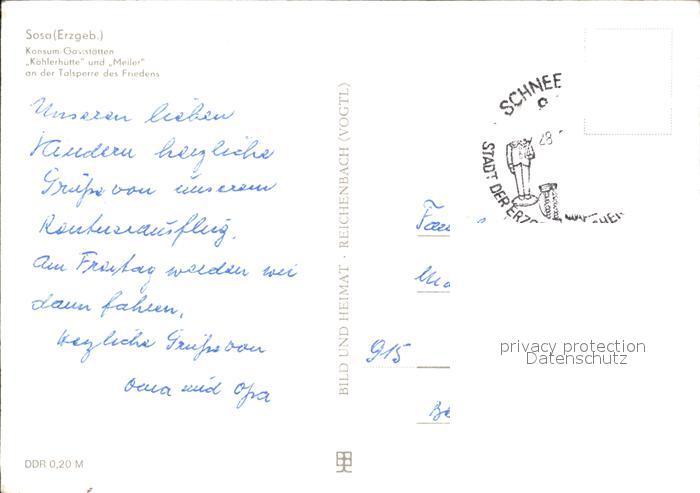 Sosa (Erzgeb.)
Konsum-Gaststätten
„Köhlerhütte" und „Meiler"
an der Talsperre des Friedens
Unseren lieben
Kindern herzliche
Grüße von unserem
am Freitag werden wir
dann fahren,
Herzliche Grüße von
Oma und Opa
DDR 0,20 M
BILD UND HEIMAT · REICHENBACH (VOGTL)
SCHNEE
28
STADT DER ERZG
Fam
915
privacy protection
Datenschutz